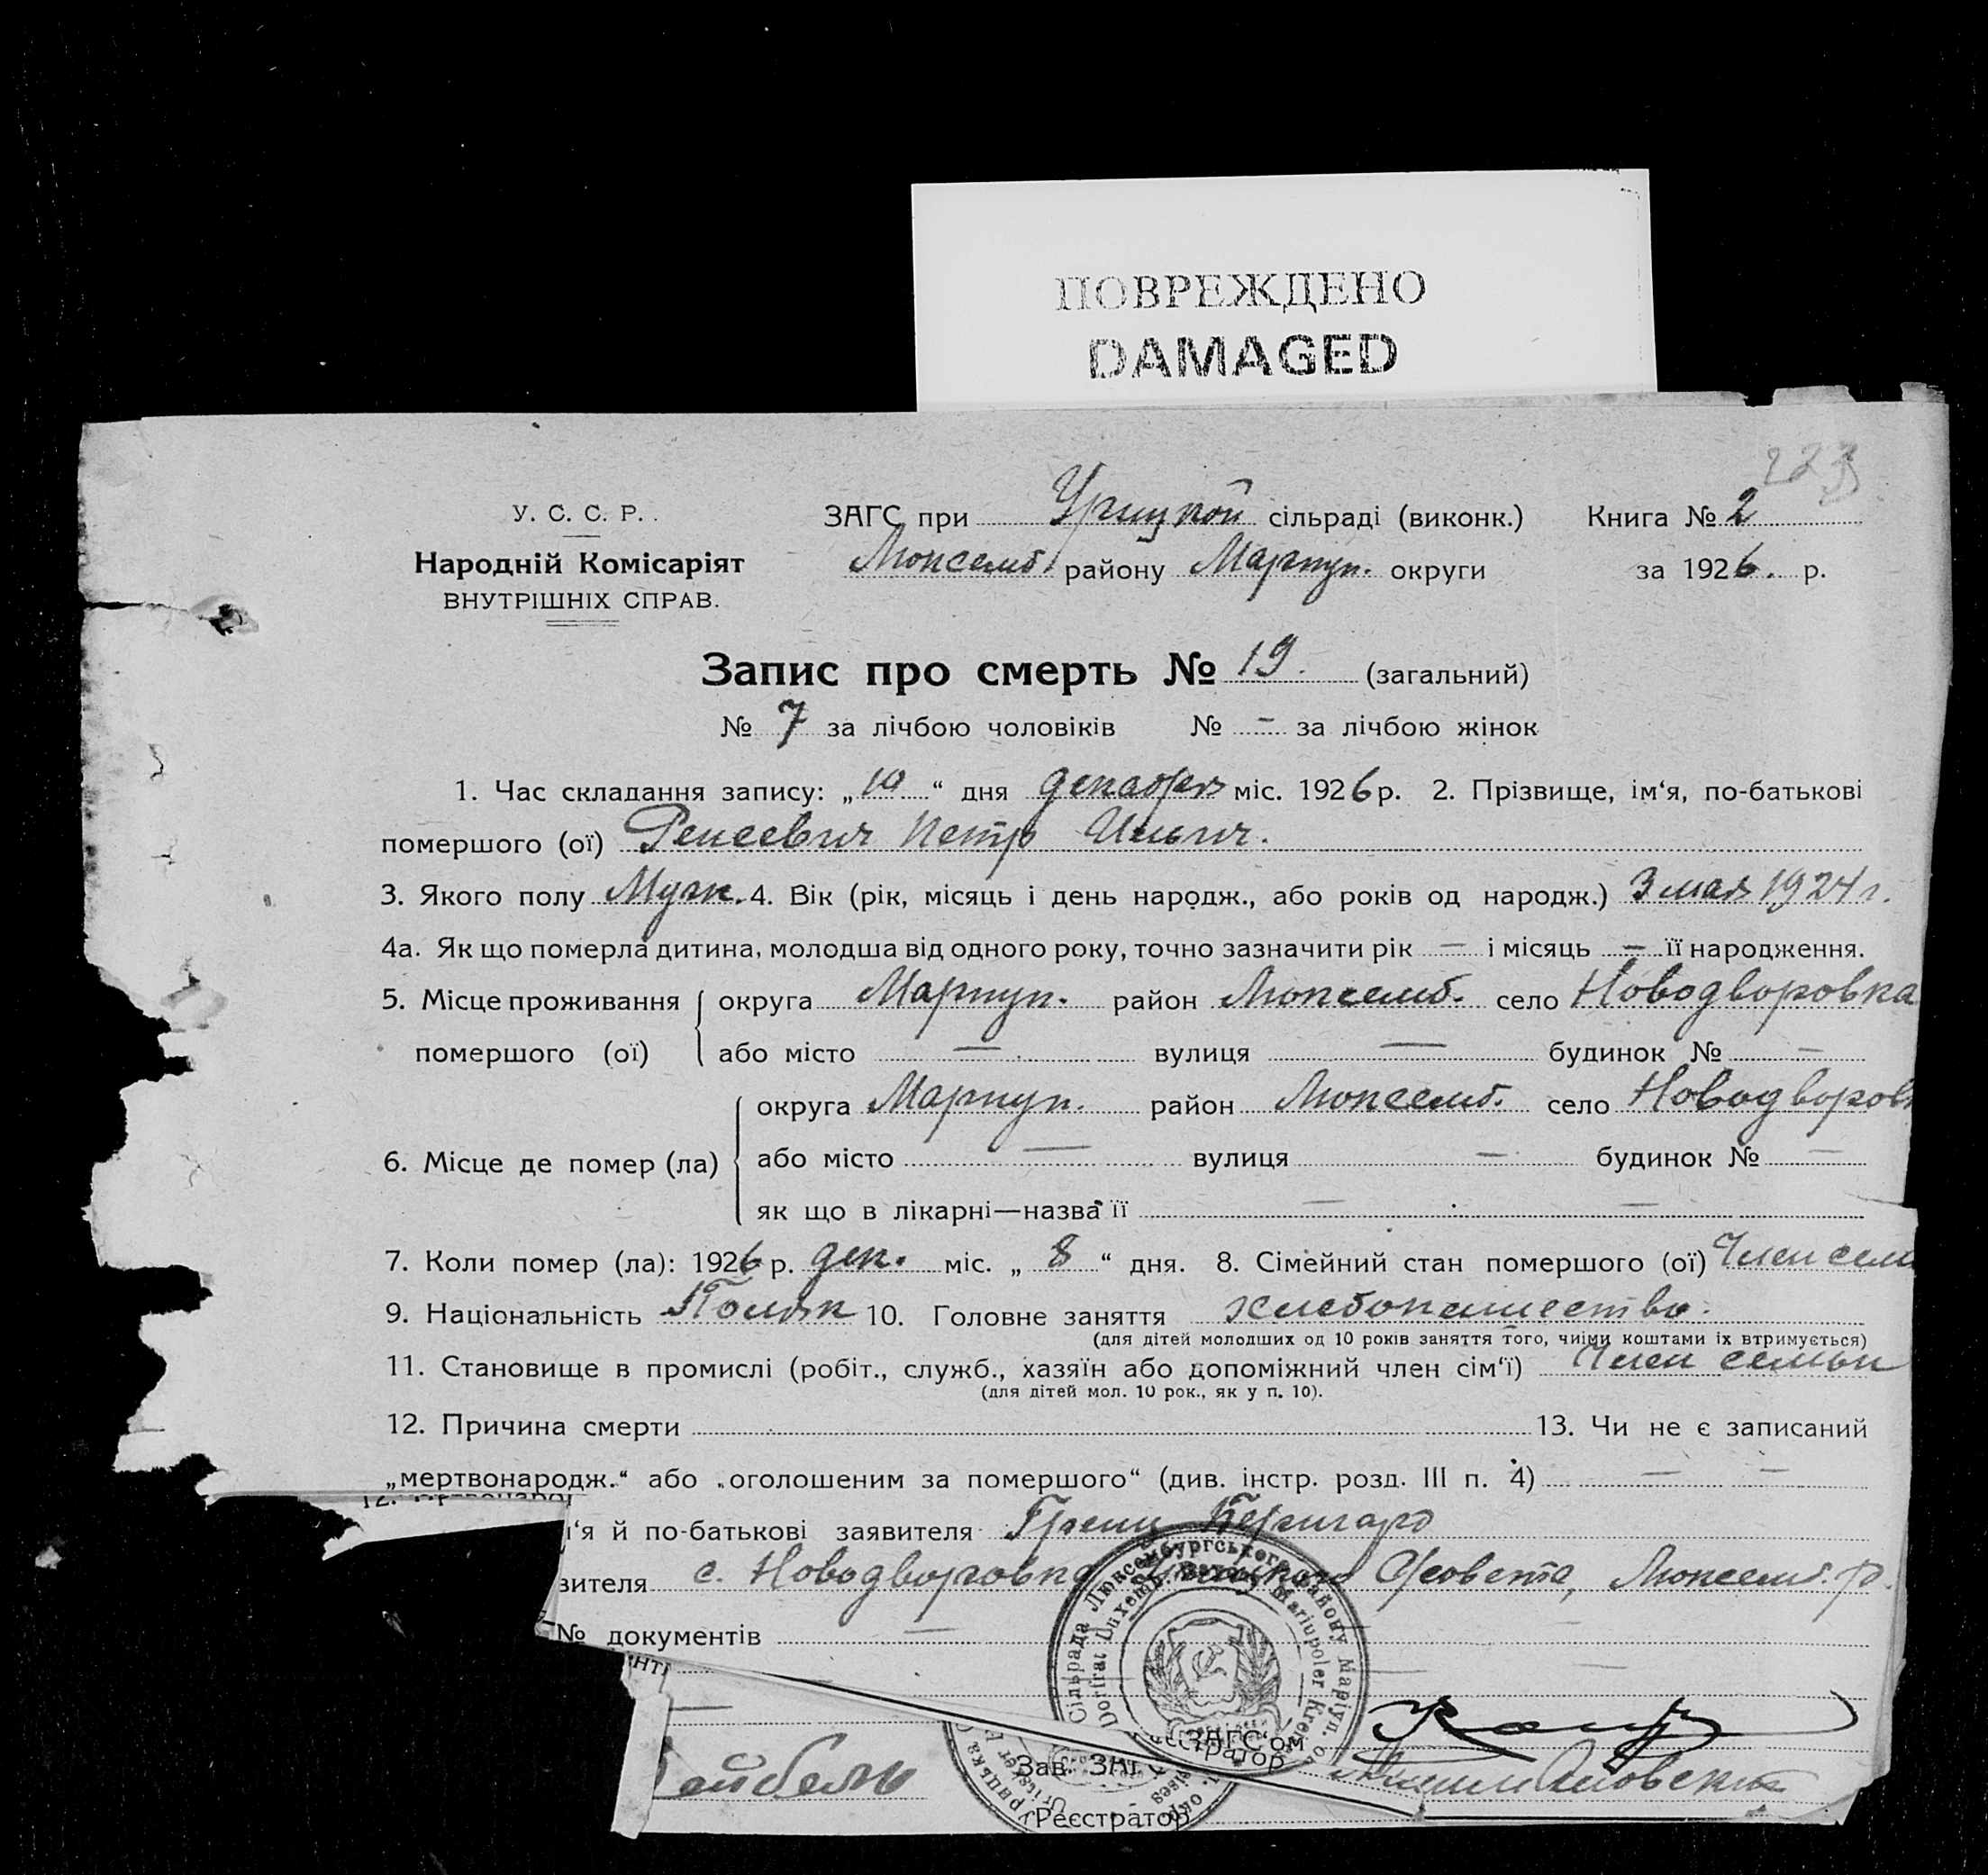 ПОВРЕЖДЕНО
DAMAGED
223
У. С. С. Р.
ЗАГС при Урицкой сільраді (виконк.) Книга № 2
Народній Комісаріят
Люксемб. району Мариуп. округи за 1926. р.
ВНУТРІШНІХ СПРАВ.
Запис про смерть № 19. (загальний)
№ 7 за лічбою чоловіків № — за лічбою жінок
1. Час складання запису: „10“ дня декабря міс. 1926 р. 2. Прізвище, ім‘я, по-батькові
помершого (ої) Петр Ильич.
3. Якого полу Муж. 4. Вік (рік, місяць і день народж., або років од народж.) 3 мая 1924 г.
4а. Як що померла дитина, молодша від одного року, точно зазначити рік — і місяць — її народження.
5. Місце проживання округа Мариуп. район Люксемб. село Новодворовка
помершого (ої) або місто — вулиця — будинок № —
округа Мариуп. район Люксемб. село Новодворов
6. Місце де помер (ла) або місто — вулиця — будинок № —
як що в лікарні—назва її — —
7. Коли помер (ла): 1926 р. дек. міс. „8“ дня. 8. Сімейний стан помершого (ої) Член сем
9. Національність Поляк 10. Головне заняття хлебопашество.
(для дітей молодших од 10 років заняття того, чиїми коштами їх втримується)
11. Становище в промислі (робіт., служб., хазяїн або допоміжний член сім‘ї) Член семьи
(для дітей мол. 10 рок., як у п. 10).
12. Причина смерти 13. Чи не є записаний
„мертвонародж.“ або „оголошеним за помершого“ (див. інстр. розд. III п. 4) — —
‘я й по-батькові заявителя Бернгард
вителя с. Новодворовка Урицкого С/совета, Люксемб. р.
№ документів —
Сільрада Люксембургського Району Маріуп.
ЗАГС‘ом
Зав. ЗАГС
Реєстратор